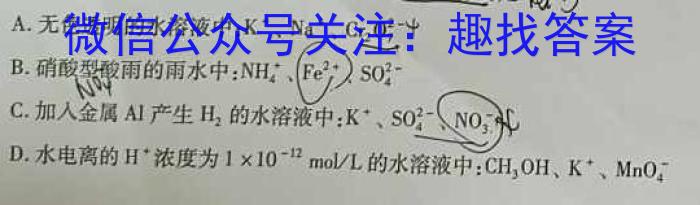 A. 无色透明的水溶液中:K⁺、Na⁺、Cr₂O₇²⁻
微信公众号关注：趣找答案
B. 硝酸型酸雨的雨水中:NH₄⁺、Fe²⁺、SO₄²⁻
NO₃⁻
C. 加入金属 Al 产生 H₂ 的水溶液中:K⁺、SO₄²⁻、NO₃⁻
D. 水电离的 H⁺浓度为 1×10⁻¹² mol/L 的水溶液中:CH₃OH、K⁺、MnO₄⁻